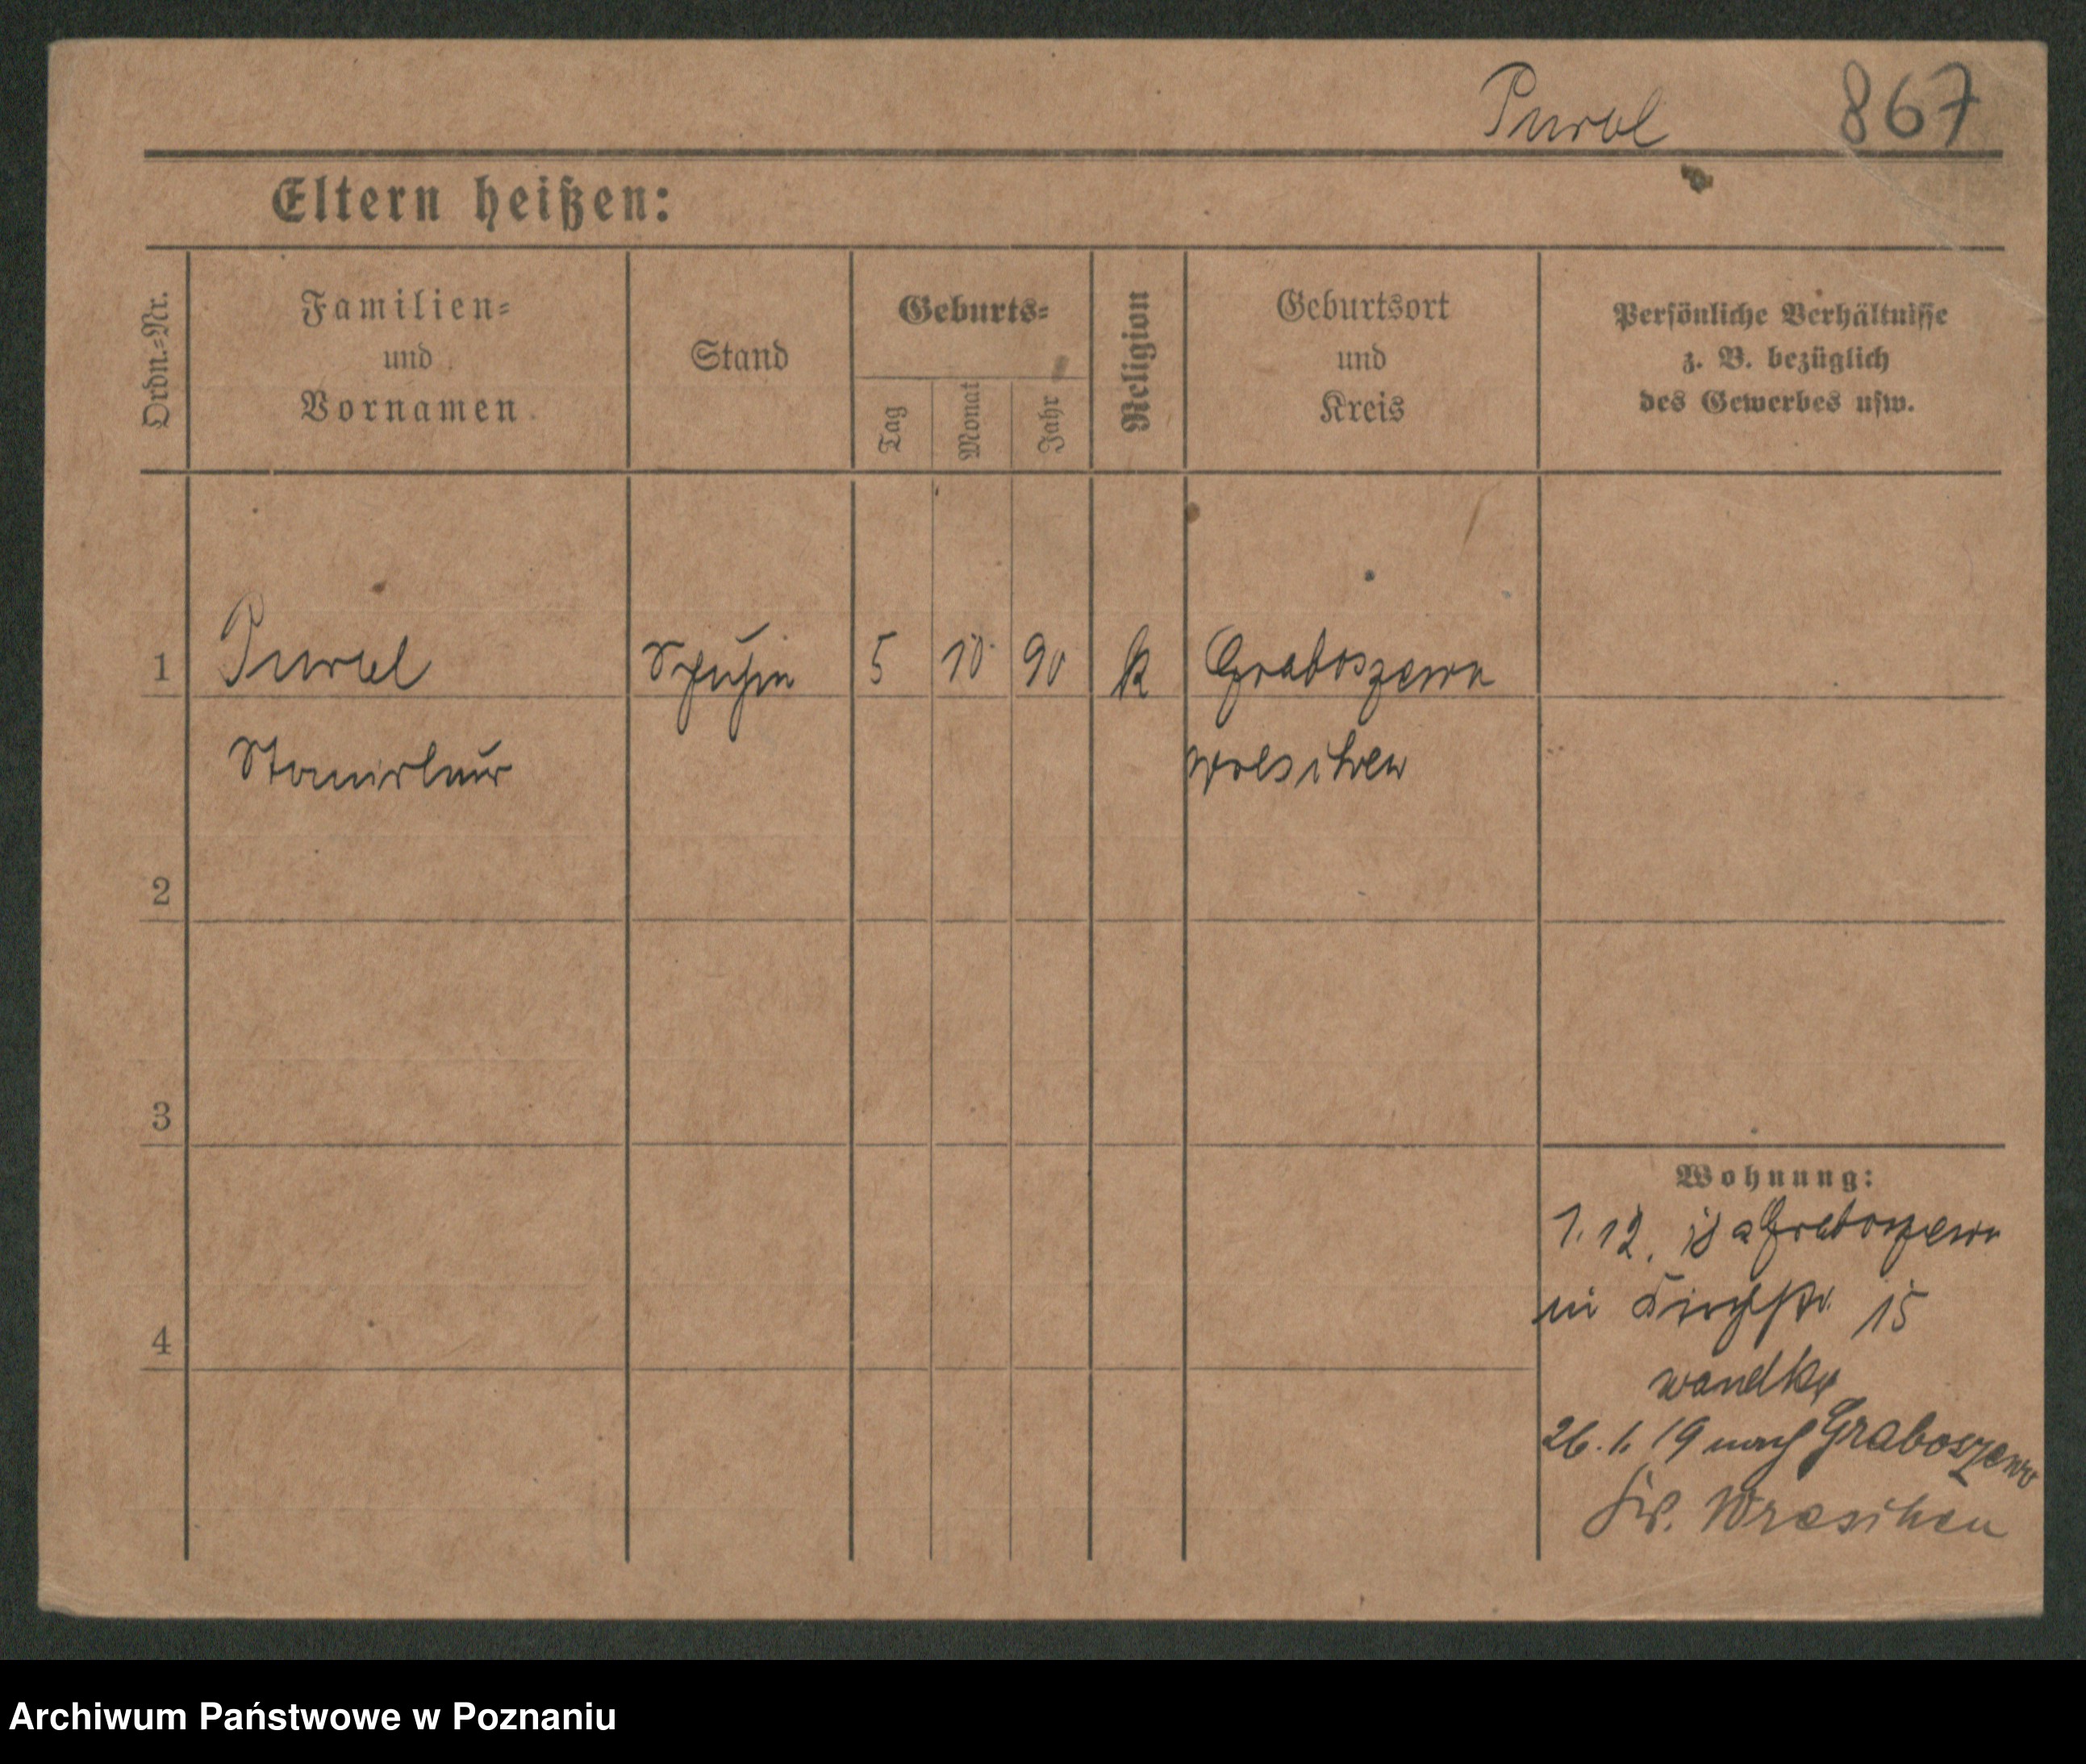 Pursel 867
Eltern heißen:
Ordn.=Nr.
Familien=
und
Vornamen
Stand
Geburts=
Tag
Monat
Jahr
Religion
Geburtsort
und
Kreis
Persönliche Verhältnisse
z. B. bezüglich
des Gewerbes usw.
1 5 10 90 k Graboszewo
Stanislaus Wreschen
2
3
Wohnung:
1. 12. 18 a Graboszewo
in 15
4
26. 1. 19 nach Graboszewo
Kr. Wreschen
Archiwum Państwowe w Poznaniu